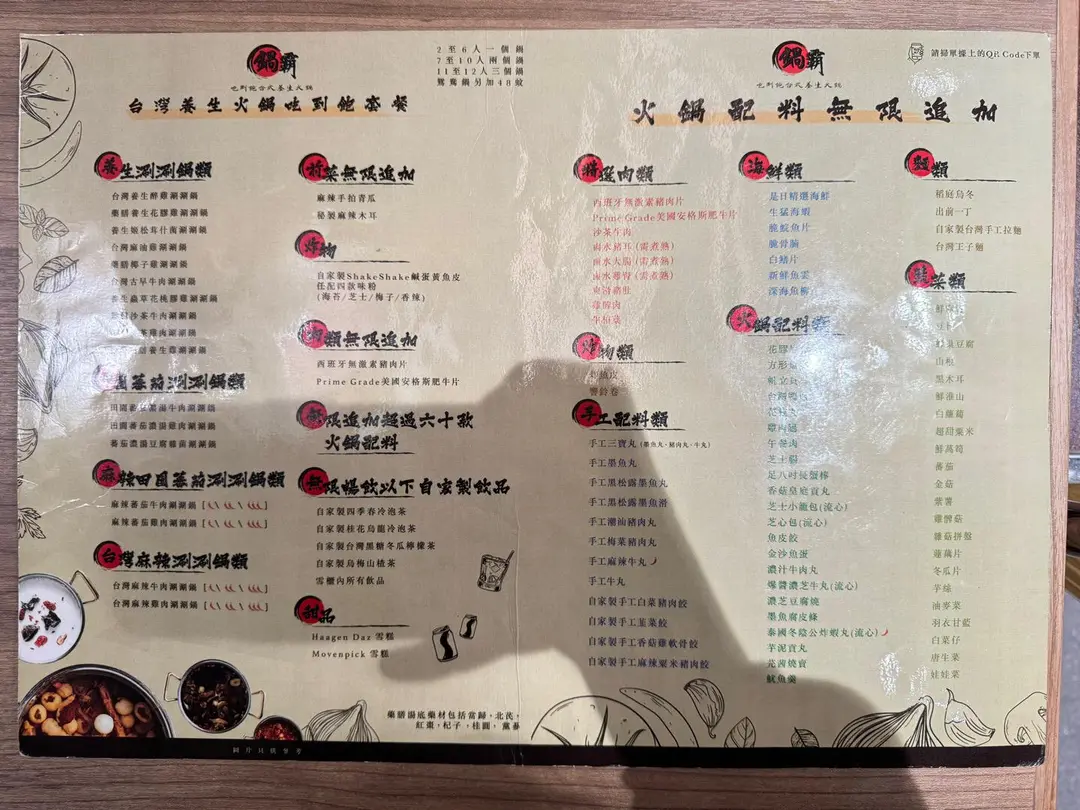 鍋霸
台灣養生火鍋吐到飽套餐
2至6人一個鍋
7至10人兩個鍋
11至12人三個鍋
鴛鴦鍋另加48蚊
養生涮涮鍋類
台灣養生醉雞涮涮鍋
藥膳養生花膠雞涮涮鍋
養生姬松茸什菌涮涮鍋
台灣麻油雞涮涮鍋
藥膳椰子雞涮涮鍋
台灣古早牛肉涮涮鍋
養生蟲草花桃膠雞涮涮鍋
沙茶牛肉涮涮鍋
茶雞肉涮涮鍋
養生雞涮涮鍋
蕃茄涮涮鍋類
田園蕃茄濃湯牛肉涮涮鍋
田園蕃茄濃湯雞肉涮涮鍋
蕃茄濃湯豆腐雞肉涮涮鍋
麻辣田園蕃茄涮涮鍋類
麻辣蕃茄牛肉涮涮鍋
麻辣蕃茄雞肉涮涮鍋
台灣麻辣涮涮鍋類
台灣麻辣牛肉涮涮鍋
台灣麻辣雞肉涮涮鍋
前菜無限追加
麻辣手拍青瓜
秘製麻辣木耳
炸物
自家製ShakeShake鹹蛋黃魚皮
任配四款味粉
(海苔/芝士/梅子/香辣)
肉類無限追加
西班牙無激素豬肉片
Prime Grade美國安格斯肥牛片
無限追加超過六十款
火鍋配料
無限暢飲以下自家製飲品
自家製四季春冷泡茶
自家製桂花烏龍冷泡茶
自家製台灣黑糖冬瓜檸檬茶
自家製烏梅山楂茶
雪櫃內所有飲品
甜品
Haagen Daz 雪糕
Movenpick 雪糕
藥膳湯底藥材包括當歸,北芪,
紅棗,杞子,桂圓,黨蔘
圖片只供參考
鍋霸
請掃單據上的QR Code下單
火鍋配料無限追加
精選肉類
西班牙無激素豬肉片
Prime Grade美國安格斯肥牛片
沙茶牛肉
鹵水豬耳(需煮熟)
鹵水大腸(需煮熟)
鹵水雞腎(需煮熟)
爽滑豬肚
雞髀肉
牛柏葉
炸物類
炸魚皮
響鈴卷
手工配料類
手工三寶丸(墨魚丸、豬肉丸、牛丸)
手工墨魚丸
手工黑松露墨魚丸
手工黑松露墨魚滑
手工潮汕豬肉丸
手工梅菜豬肉丸
手工麻辣牛丸
手工牛丸
自家製手工白菜豬肉餃
自家製手工韮菜餃
自家製手工香菇雞軟骨餃
自家製手工麻辣粟米豬肉餃
海鮮類
是日精選海鮮
生猛海蝦
脆鯇魚片
脆骨腩
白鱔片
新鮮魚雲
深海魚柳
火鍋配料類
花膠
方形
帆立貝
台灣鴨
雞肉腸
午餐肉
芝士腸
足八吋長蟹柳
香菇皇庭貢丸
芝士小籠包(流心)
芝心包(流心)
魚皮餃
金沙魚蛋
濃汁牛肉丸
爆醬濃芝牛丸(流心)
濃芝豆腐燒
墨魚腐皮條
泰國冬陰公炸蝦丸(流心)
芋泥貢丸
芫茜燒賣
魷魚羹
麵類
稻庭烏冬
出前一丁
自家製台灣手工拉麵
台灣王子麵
蔬菜類
豆腐
山根
黑木耳
鮮淮山
白蘿蔔
超甜粟米
鮮萵筍
蕃茄
金菇
紫薯
雞髀菇
雜菇拼盤
蓮藕片
冬瓜片
芋絲
油麥菜
羽衣甘藍
白菜仔
唐生菜
娃娃菜